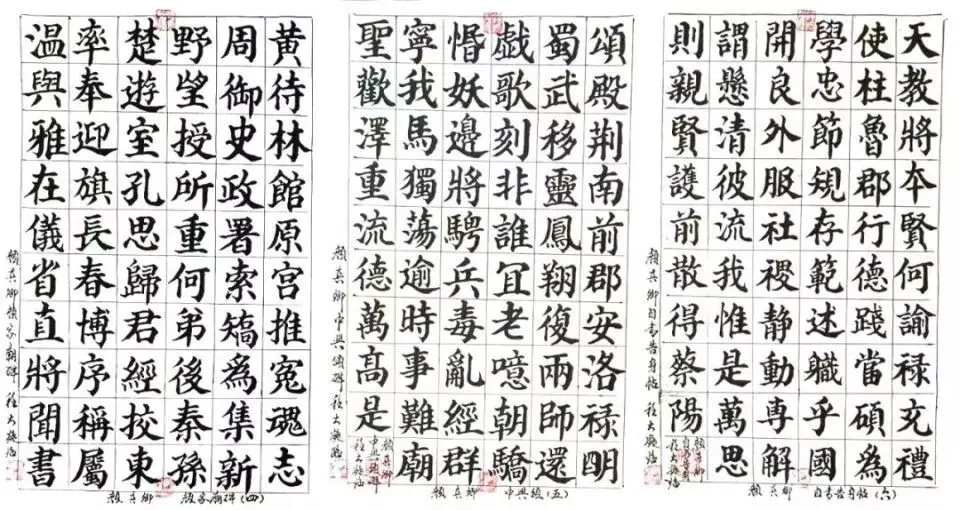 黄待林館原宮推冤魂志
周御史政署索矯為集新
野望授所重何弟後秦孫
楚遊室孔思歸君經挍東
率奉迎旗長春博序稱屬
温與雅在儀省直將聞書
顏真卿顏家廟碑
顏真卿 顏家廟碑(四)
頌殿荆南前郡安洛禄明
蜀武移靈鳳翔復兩師還
戲歌刻非誰宜老噫朝驕
惛妖邊將騁兵毒亂經群
寧我馬獨蕩逾時事難廟
聖歡澤重流德萬高是
顏真卿中興頌碑
顏真卿 中興頌(五)
天教將本賢何諭禄充禮
使柱魯郡行德踐當碩為
學忠節規存範述職乎國
開良外服社稷静動専解
謂懸清彼流我惟是萬思
則親賢護前散得蔡陽
顏真卿自書告身帖
顏真卿 自書告身帖(六)